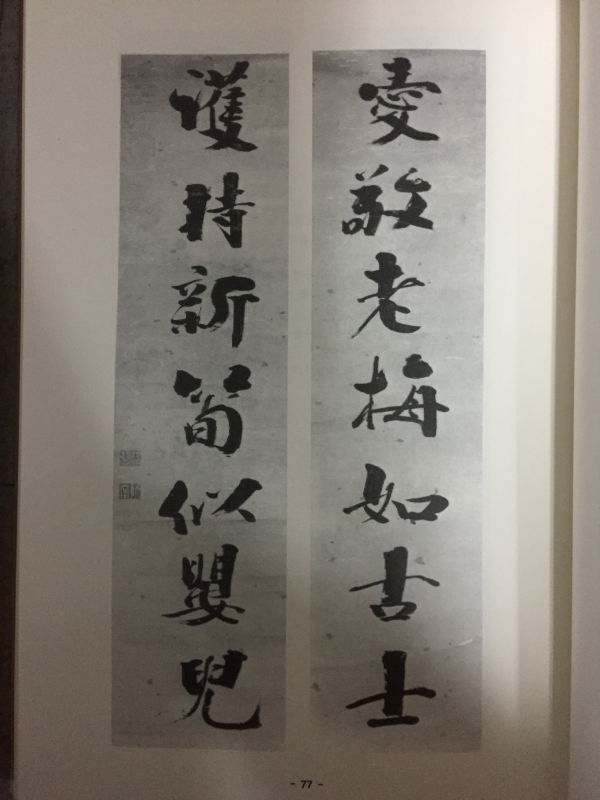 愛敬老梅如古士
護持新筍似嬰兒
- 77 -